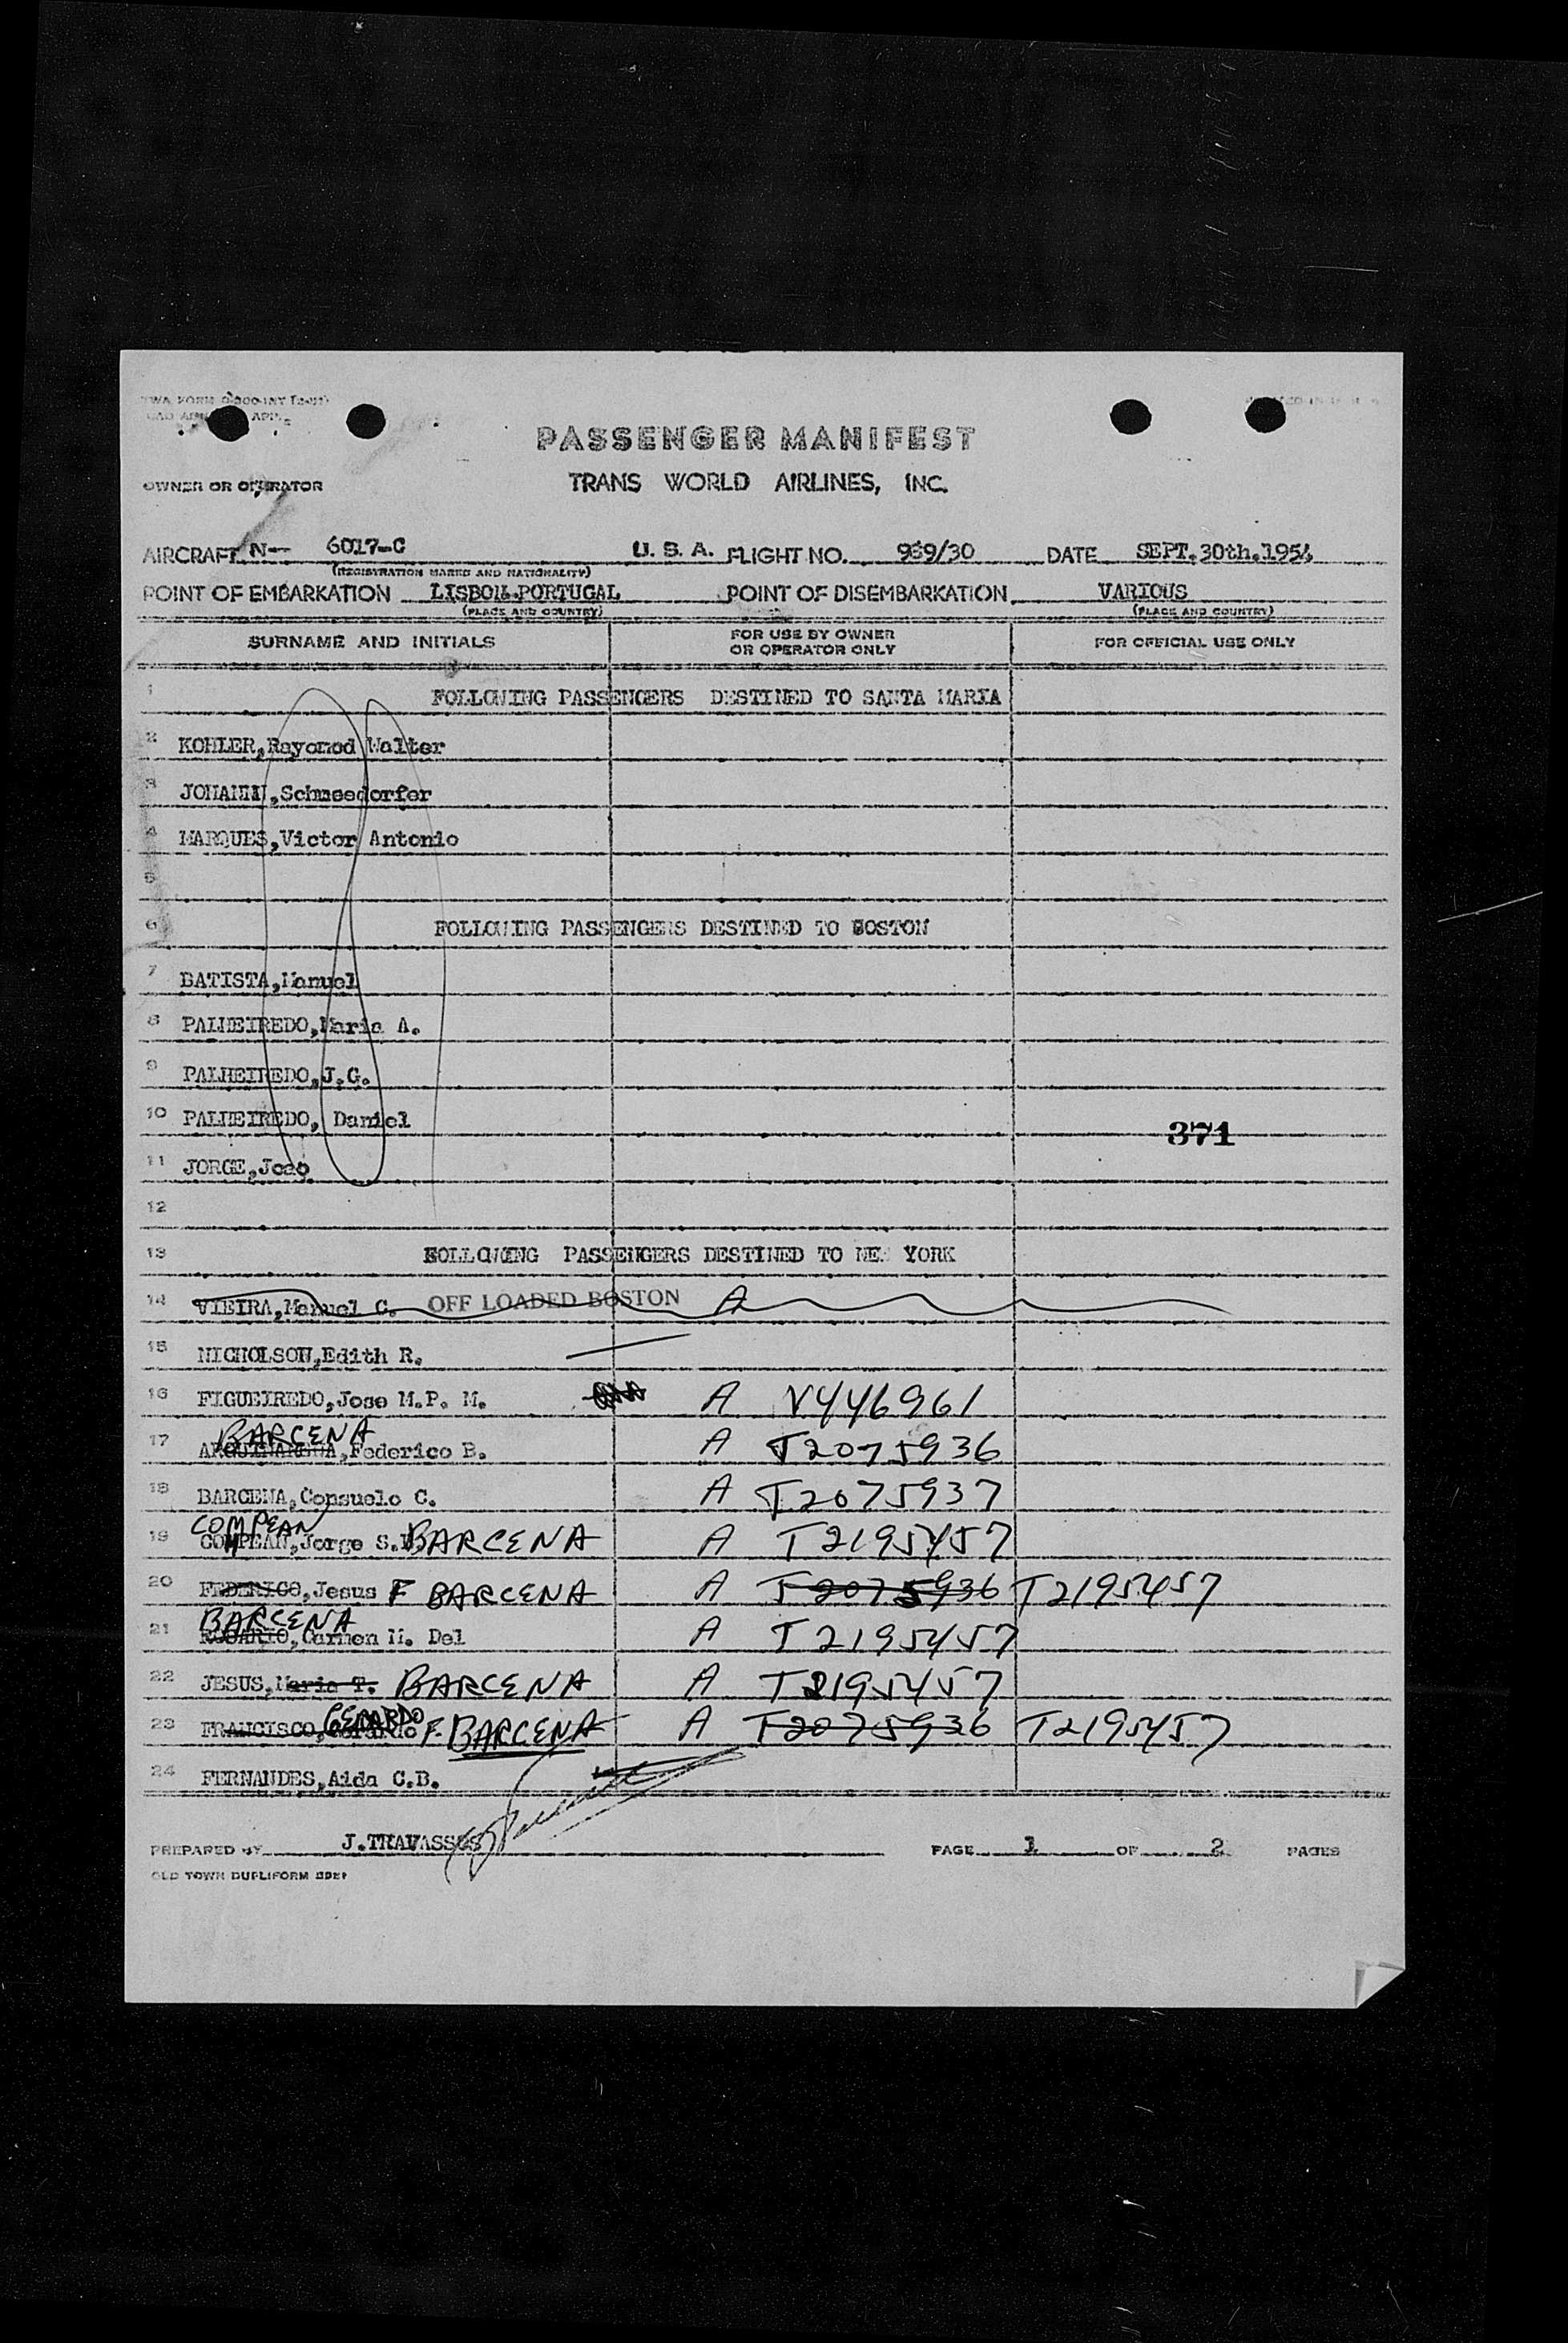 TWA FORM
PASSENGER MANIFEST
OWNER OR OPERATOR TRANS WORLD AIRLINES, INC.
AIRCRAFT N-- 6017-C U. S. A. FLIGHT NO. 959/30 DATE SEPT.30th.1954
(REGISTRATION MARKS AND NATIONALITY)
POINT OF EMBARKATION LISBON.PORTUGAL POINT OF DISEMBARKATION VARIOUS
(PLACE AND COUNTRY) (PLACE AND COUNTRY)
SURNAME AND INITIALS FOR USE BY OWNER OR OPERATOR ONLY FOR OFFICIAL USE ONLY
1 FOLLOWING PASSENGERS DESTINED TO SANTA MARIA
2 KOHLER,Raymond Walter
3 JOHANN,Schmeedorfer
4 MARQUES,Victor Antonio
5
6 FOLLOWING PASSENGERS DESTINED TO BOSTON
7 BATISTA,Manuel
8 PALHEIREDO,Maria A.
9 PALHEIREDO,J.G.
10 PALHEIREDO, Daniel
371
11 JORGE,Joao
12
13 FOLLOWING PASSENGERS DESTINED TO NEW YORK
14 VIEIRA,Manuel C. OFF LOADED BOSTON A
15 NICHOLSON,Edith R.
16 FIGUEIREDO,Jose M.P. M. A V446961
BARCENA
17 ,Federico B. A T2075936
18 BARCENA,Consuelo C. A T2075937
COMPEAN
19 COMPEAN,Jorge S. BARCENA A T2195457
20 FEDERICO,Jesus F BARCENA A T2075936 T2195457
BARCENA
21 ROSARIO,Carmen M. Del A T2195457
22 JESUS,Maria T. BARCENA A T2195457
GERARDO
23 FRANCISCO,Gerardo F. BARCENA A T2075936 T2195457
24 FERNANDES,Aida C.B.
PREPARED BY J.TRAVASSOS PAGE 1 OF 2 PAGES
OLD TOWN DUPLIFORM